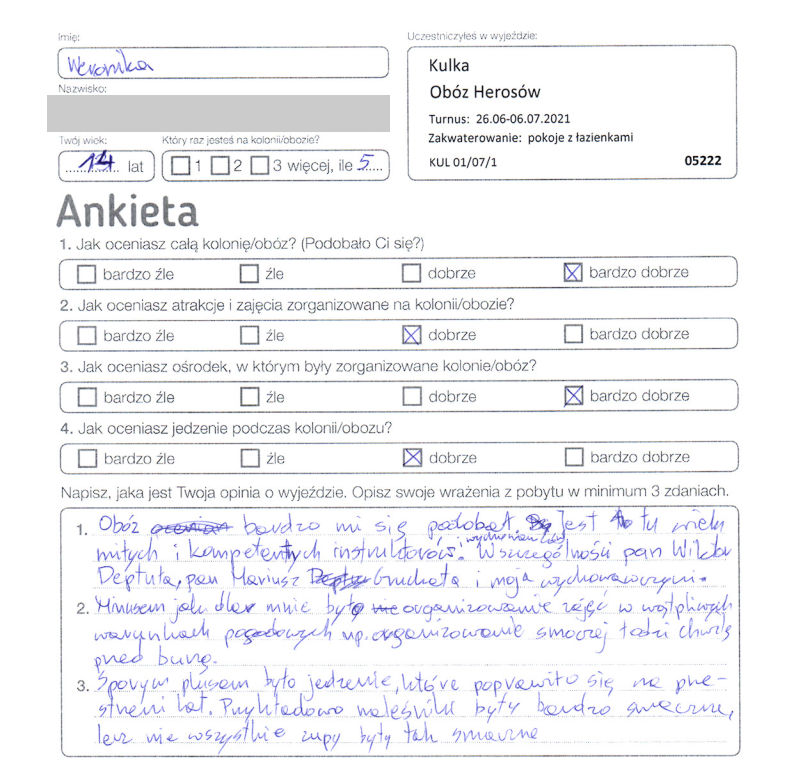 Imię:
Weronika
Nazwisko:
Twój wiek:
14 lat
Który raz jesteś na kolonii/obozie?
1 2 3 więcej, ile 5
Uczestniczyłeś w wyjeździe:
Kulka
Obóz Herosów
Turnus: 26.06-06.07.2021
Zakwaterowanie: pokoje z łazienkami
KUL 01/07/1 05222
Ankieta
1. Jak oceniasz całą kolonię/obóz? (Podobało Ci się?)
bardzo źle źle dobrze bardzo dobrze
2. Jak oceniasz atrakcje i zajęcia zorganizowane na kolonii/obozie?
bardzo źle źle dobrze bardzo dobrze
3. Jak oceniasz ośrodek, w którym były zorganizowane kolonie/obóz?
bardzo źle źle dobrze bardzo dobrze
4. Jak oceniasz jedzenie podczas kolonii/obozu?
bardzo źle źle dobrze bardzo dobrze
Napisz, jaka jest Twoja opinia o wyjeździe. Opisz swoje wrażenia z pobytu w minimum 3 zdaniach.
1. Obóz bardzo mi się podobał. Jest tu wielu
miłych i kompetentnych instruktorów. W szczególności pan Wiktor
Deptuła, pan Mariusz Gruchała i moja wychowawczyni.
2. Minusem jak dla mnie było organizowanie zajęć w wątpliwych
warunkach pogodowych np. organizowanie smoczej łodzi chwilę
przed burzą.
3. Sporym plusem było jedzenie, które poprawiło się na prze-
strzeni lat. Przykładowo naleśniki były bardzo smaczne,
lecz nie wszystkie zupy były tak smaczne